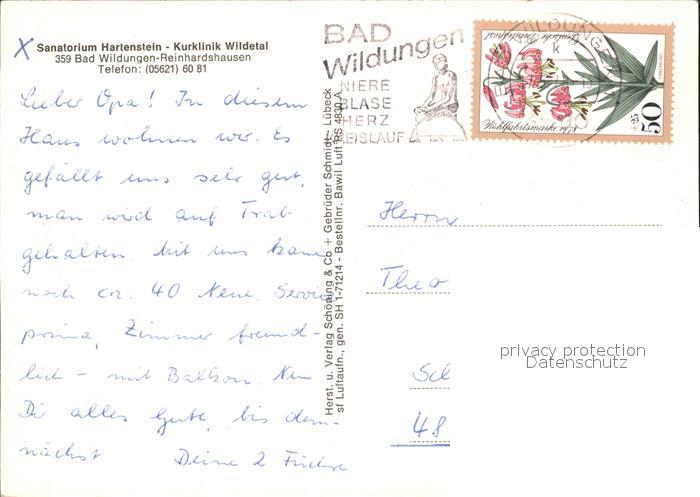 X Sanatorium Hartenstein - Kurklinik Wildetal
359 Bad Wildungen-Reinhardshausen
Telefon: (05621) 60 81
Lieber Opa! In diesem
Haus wohnen wir. Es
gefällt uns sehr gut,
man wird auf Trab
gehalten. Mit uns kamen
noch ca. 40 Neue. Service
prima, Zimmer freund-
lich - mit Balkon. Nun
Dir alles Gute, bis dem-
nächst Deine 2 Füchse
Herst. u. Verlag Schöning & Co + Gebrüder Schmidt - Lübeck
sf Luftaufn., gen. SH 1-71214 - Bestellnr. Bawil Luft RS 4830 A
BAD
Wildungen
NIERE
BLASE
HERZ
KREISLAUF
BAD WILDUNGEN
k
Deutsche Bundespost
Wohlfahrtsmarke 1975
50
+25
Herrn
Theo
Sch
48
privacy protection
Datenschutz